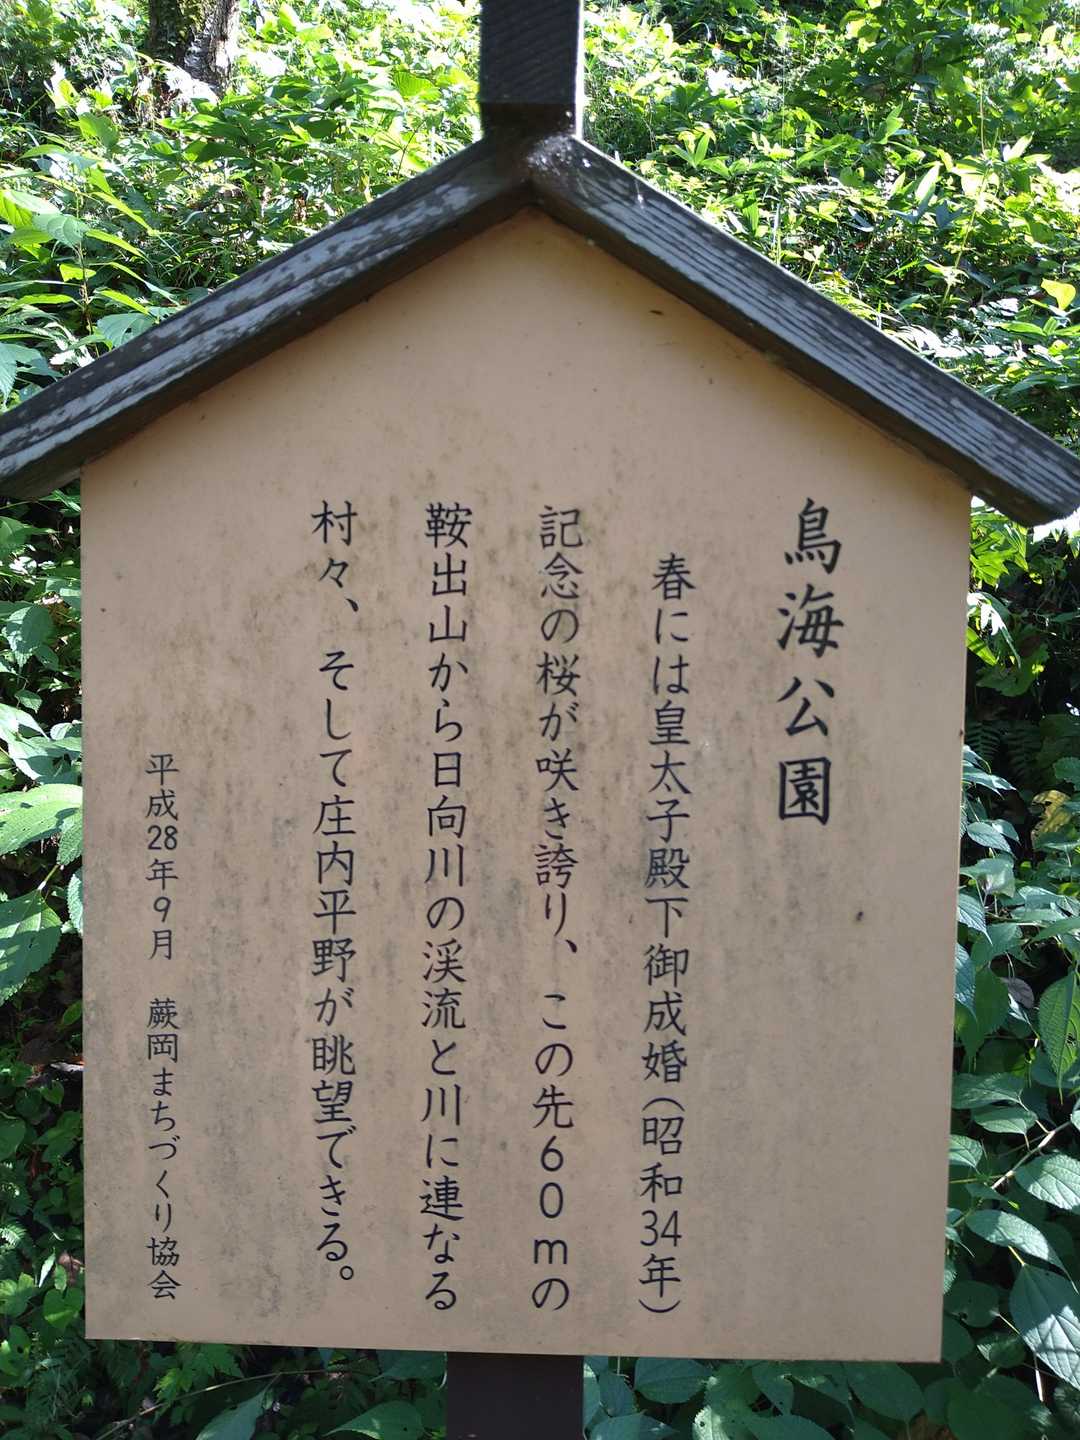 鳥海公園
春には皇太子殿下御成婚(昭和34年)
記念の桜が咲き誇り、この先60mの
鞍出山から日向川の渓流と川に連なる
村々、そして庄内平野が眺望できる。
平成28年9月 蕨岡まちづくり協会